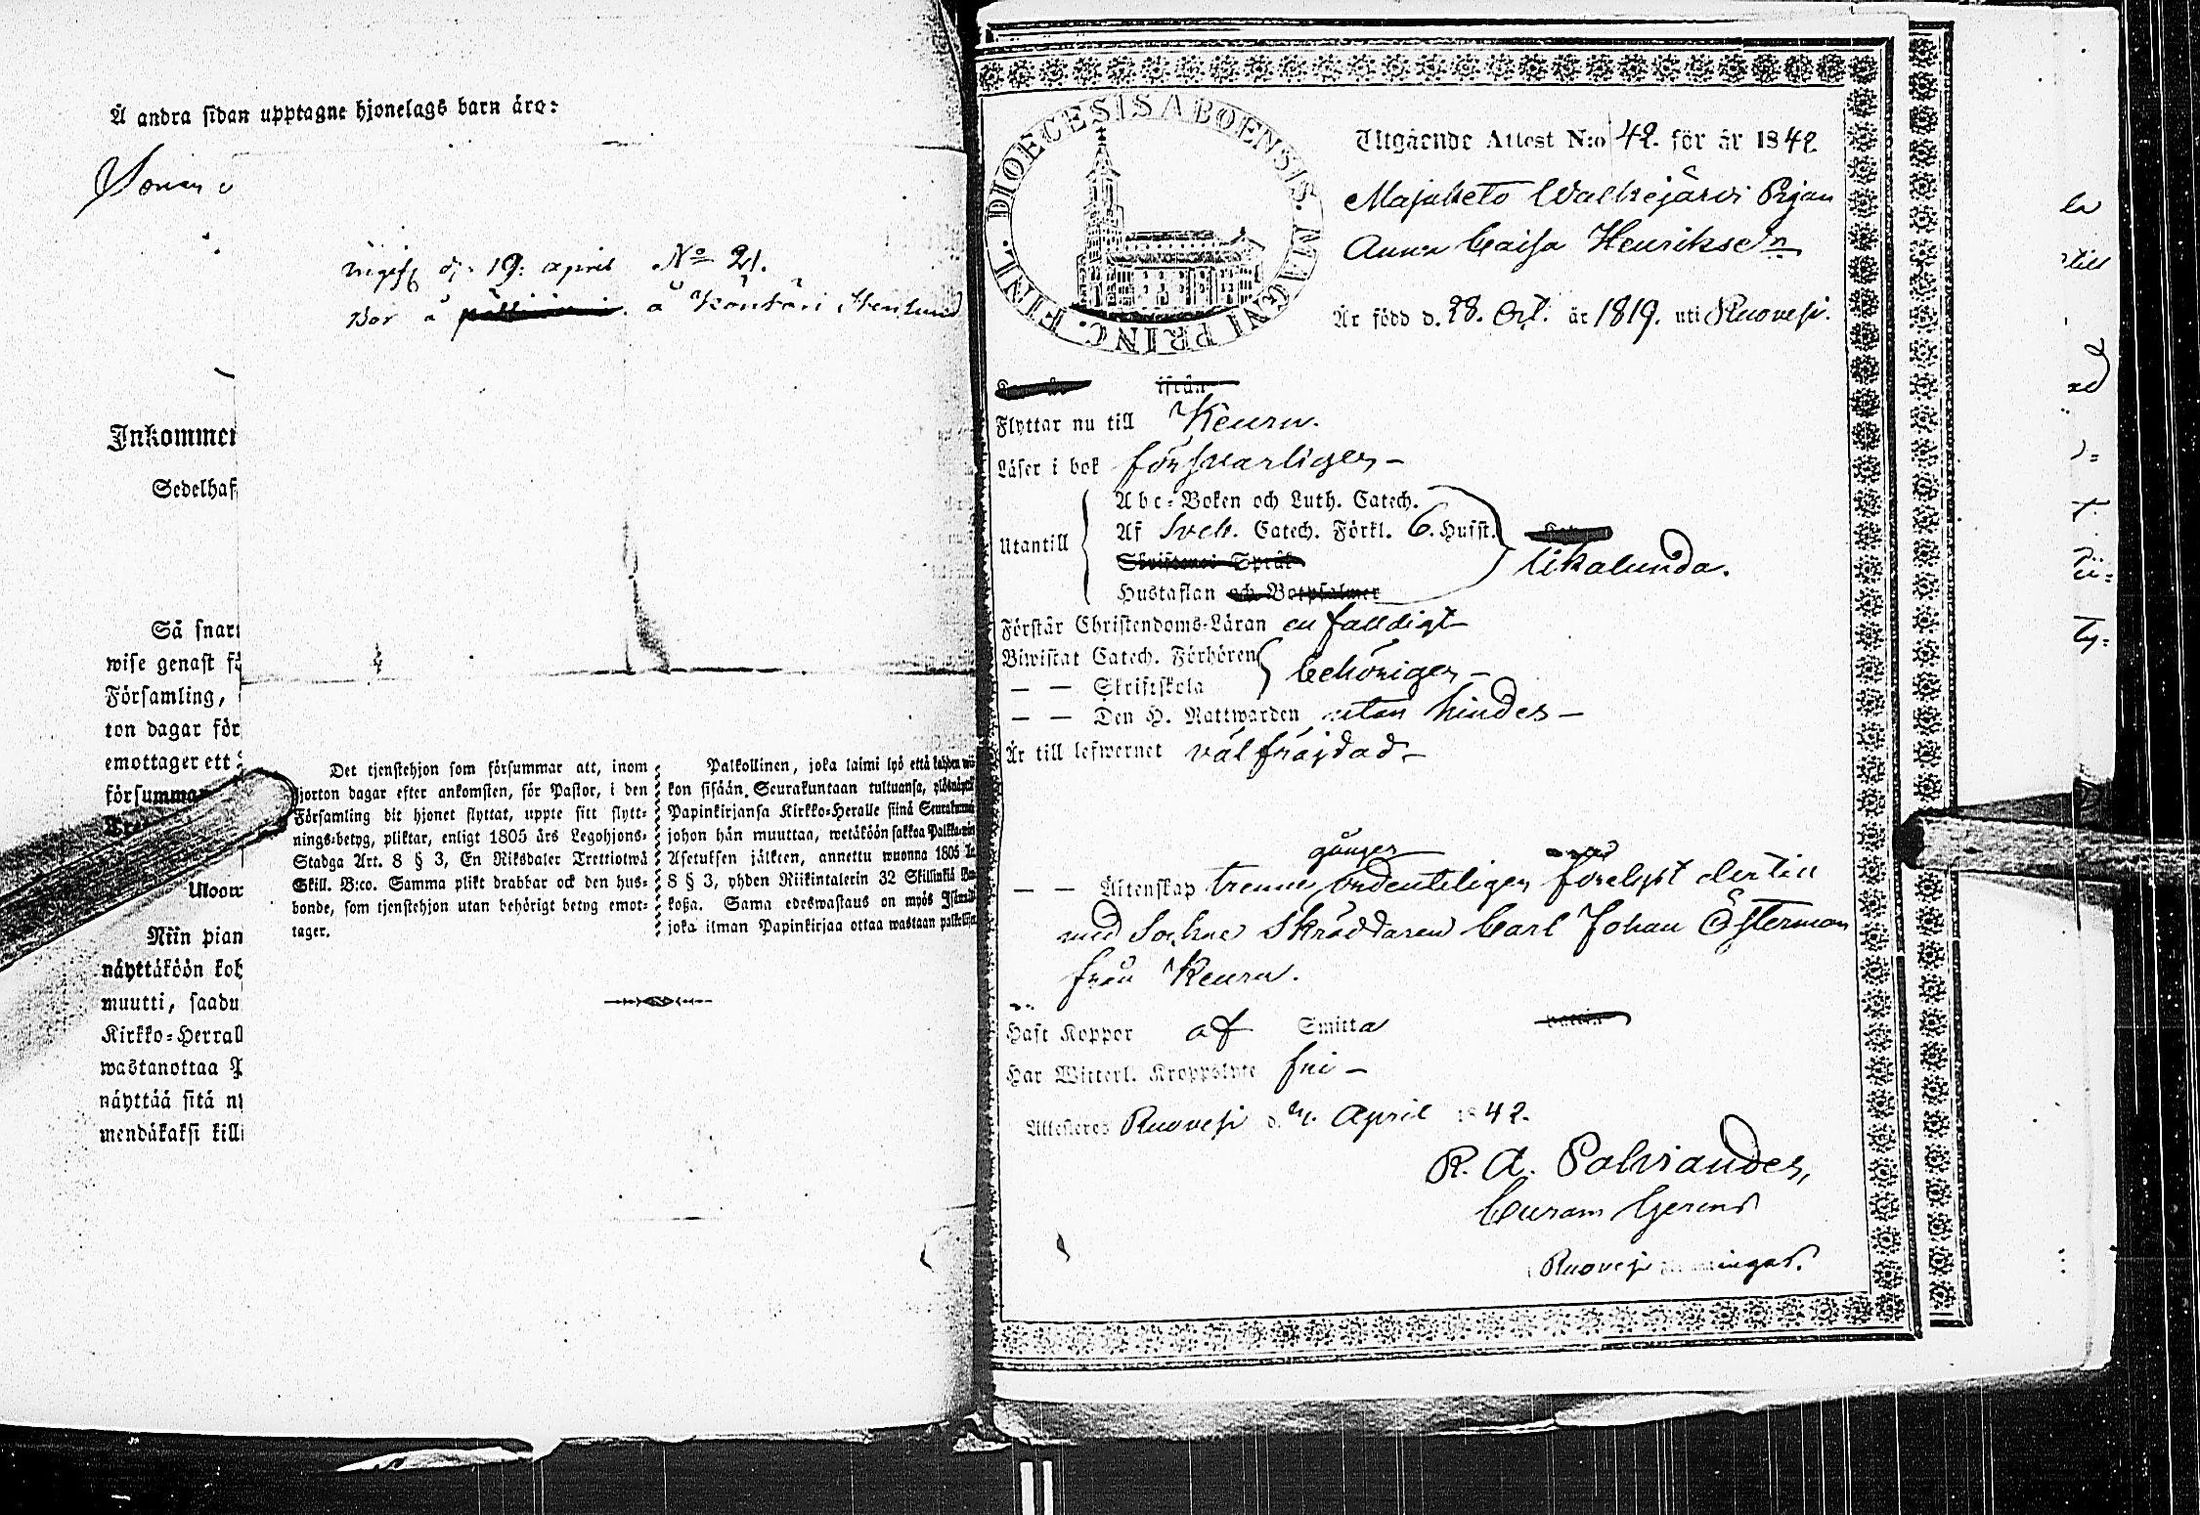 Å andra sidan upptagne hjonelags barn äro:
Sonen
d. 19. april No 21.
Bor å å
Inkommen
Sedelhaf
Så snart
wise genast få
Församling,
ton dagar för
emottager ett
försummar
Uloow
Niin pian
näyttäköön koh
muutti, saadu
Kirkko-Herrall
wastanottaa P
näyttää sitä ny
mendäkaksi killi
Det tjenstehjon som försummar att, inom
fjorton dagar efter ankomsten, för Pastor, i den
Församling dit hjonet flyttat, uppte sitt flytt-
nings-betyg, pliktar, enligt 1805 års Legohjons-
Stadga Art. 8 § 3, En Riksdaler Trettiotwå
Skill. B:co. Samma plikt drabbar ock den hus-
bonde, som tjenstehjon utan behörigt betyg emot-
tager.
Palkollinen, joka laimi lyö että kahden wii
kon sisään, Seurakuntaan tultuansa, ylösnäyttä
Papinkirjansa Kirkko-Heralle siinä Seurakunna
johon hän muuttaa, wetäköön sakkoa Palkka-wäen
Asetuksen jälkeen, annettu wuonna 1805
8 § 3, yhden Riikintalerin 32 Skillinkiä Ban
koßa. Sama edeswastaus on myös Isännällä
joka ilman Papinkirjaa ottaa wastaan palkollisen
DIOECESIS ABOENSIS. MAGNI PRINC. FINL.
Utgående Attest N:o 42. för år 1842
Majaketo Walkejärvi Pigan
Anna Caisa Henriksd:r
Är född d. 28. Oct. år 1819. uti Ruovesi.
ifrån
Flyttar nu till Keuru.
Läser i bok försvarligen –
Abc-Boken och Luth. Catech.
Utantill Af Sveb. Catech. Förkl. 6. Husst.
Skriftenes Språk likalunda.
Hustaflan och Botpsalmer
Förstår Christendoms-Läran enfaldigt
Biwistat Catech. Förhören behörigen –
— — Skriftskola
— — Den H. Nattwarden utan hinder –
Är till lefwernet välfräjdad –
gånger
— — Äktenskap trenne ordenteligen förelyst dertill
med Sockne Skräddaren Carl Johan Österman
från Keuru.
Haft Koppor af Smitta
Har Witterl. Kroppslyte fri –
Attesteras Ruovesi d. April 1842.
R. A. Polviander,
Curam Gerens
Ruovesi